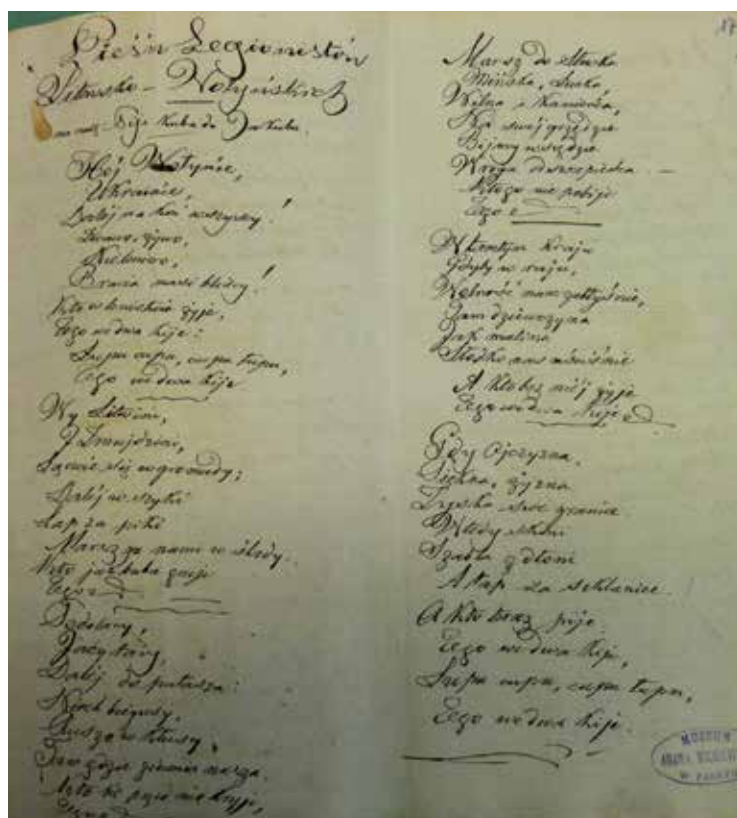 Pieśń Legionistów
Litewsko - Wołyńskich
na nutę Pije Kuba do Jakuba.
Hej Wołynie,
Ukrainie,
Dalej na koń wszyscy!
Żwawo, żywo,
Bracia nasi bliscy!
Kto w żyje,
Tego we dwa kije:
Łupu cupu, cupu łupu,
Tego we dwa kije
Wy Litwini,
I Żmujdzini,
Łączcie się w gromady;
Dalej w szyki
Łap za piki
Marsz za nami w ślady.
Kto jak baba gnije
Tego
Dalej do pałasza:
Niech
Rusza w
gdzie ziemia nasza.
A kto się nie kryje,
17
Marsz do Słucka
Mińska, Łucka,
Wilna i Kamieńca,
Na swej grzędzie
Bijmy wszędzie
Wroga
nie pobije
Tego
W tym kraju
Gdyby w raju,
Wolność nam
Tam dziewczyna
Jak malina
Słodko nam
A kto bez niej żyje
Tego we dwa kije
Gdy Ojczyzna,
Piękna, żyzna
Zyska swe granice
Wtedy
Szabla z dłoni
A łap za szklanice.
A kto teraz pije
Tego we dwa kije,
Łupu cupu, cupu łupu,
Tego we dwa kije.
MUZEUM
ADAMA
W PARYŻU